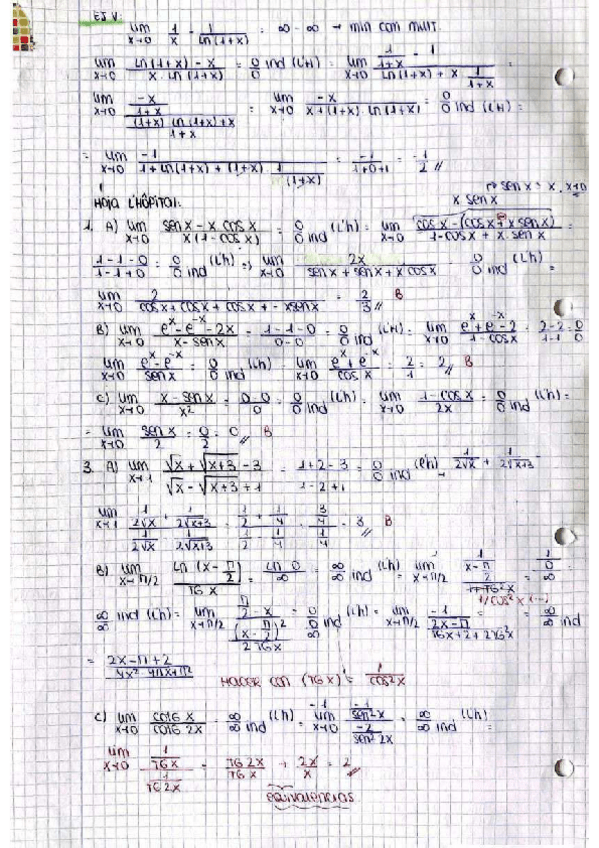 EJ V:
lim x→0 1/x - 1/ln(1+x) = ∞ - ∞ → min com mult.
lim x→0 (ln(1+x) - x)/(x · ln(1+x)) = 0/0 ind (L'H) = lim x→0 (1/(1+x) - 1)/(ln(1+x) + x 1/(1+x)) =
lim x→0 (-x/(1+x))/(((1+x) ln(1+x) + x)/(1+x)) = lim x→0 -x/(x + (1+x) · ln(1+x)) = 0/0 ind (L'H) =
= lim x→0 -1/(1 + ln(1+x) + (1+x) · 1/(1+x)) = -1/(1+0+1) = -1/2 //
→ sen x = x, x→0
HOJA L'HÔPITAL:
x sen x
1. A) lim x→0 (sen x - x cos x)/(x(1 - cos x)) = 0/0 ind (L'H) = lim x→0 (cos x - (cos x + x sen x))/(1 - cos x + x · sen x) =
(1-1-0)/(1-1+0) = 0/0 ind (L'H) =, lim x→0 2x/(sen x + sen x + x cos x) = 0/0 ind (L'H) =
lim x→0 2/(cos x + cos x + cos x + - x sen x) = 2/3 // B
B) lim x→0 (e^x - e^-x - 2x)/(x - sen x) = (1-1-0)/(0-0) = 0/0 ind (L'H) = lim x→0 (e^x + e^-x - 2)/(1 - cos x) = (2-2)/(1-1) = 0/0
lim x→0 (e^x - e^-x)/(sen x) = 0/0 ind (L'H) = lim x→0 (e^x + e^-x)/(cos x) = 2/1 = 2 // B
C) lim x→0 (x - sen x)/x² = (0-0)/0 = 0/0 ind (L'H) = lim x→0 (1 - cos x)/2x = 0/0 ind (L'H) =
= lim x→0 sen x/2 = 0/2 = 0 // B
3. A) lim x→1 (√x + √(x+3) - 3)/(√x - √(x+3) + 1) = (1+2-3)/(1-2+1) = 0/0 ind (L'H) = 1/(2√x) + 1/(2√(x+3))
lim x→1 (1/(2√x) + 1/(2√(x+3)))/(1/(2√x) - 1/(2√(x+3))) = (1/2 + 1/4)/(1/2 - 1/4) = (3/4)/(1/4) = 3 // B
B) lim x→π/2 ln(x - π/2)/(TG x) = ln 0/∞ = ∞/∞ ind (L'H) = lim x→π/2
1/cos² x
∞/∞ ind (L'H) = lim x→π/2
HACER CON (TG x)' = 1/cos² x
C) lim x→0 COTG x/COTG 2x = ∞/∞ ind (L'H) = lim x→0 (-1/sen² x)/(-2/sen² 2x) = ∞/∞ ind (L'H) =
lim x→0 (1/TG x)/(1/TG 2x) = TG 2x/TG x → 2x/x = 2 //
equivalencias